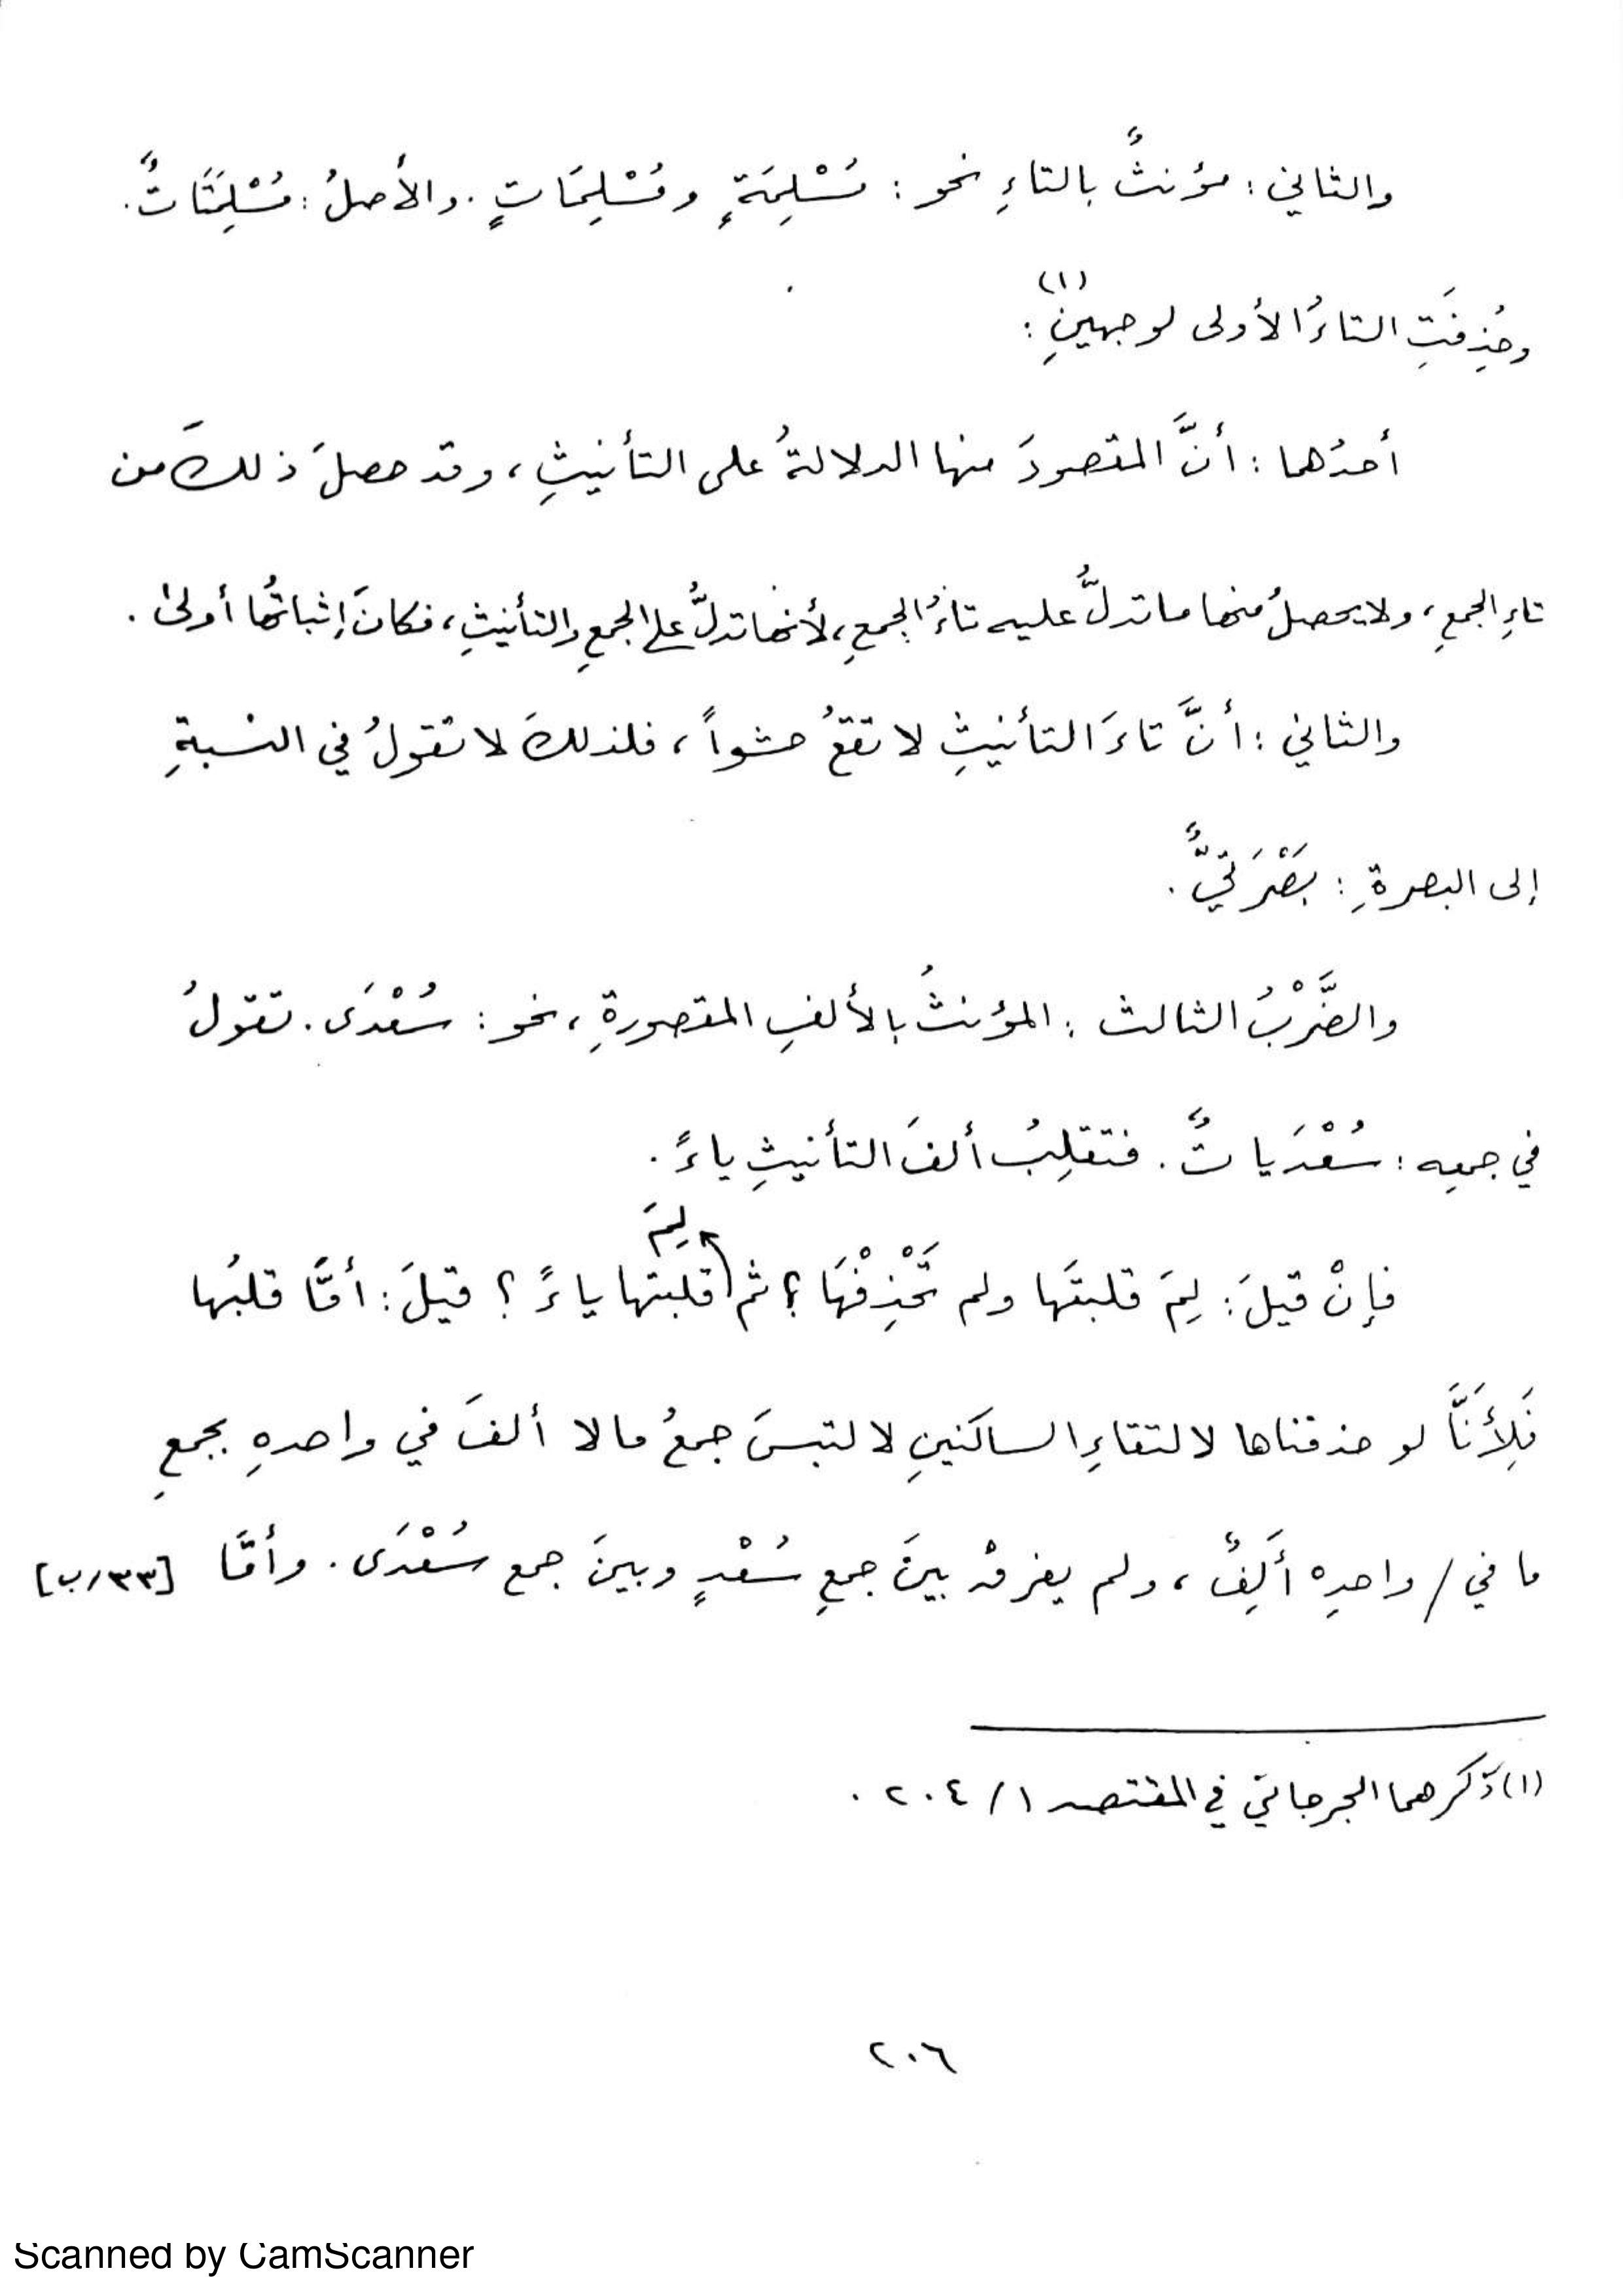 والثاني : مؤنثٌ بالتاءِ نحو : مُسْلِمَةٍ ومُسْلِمَاتٍ . والأصلُ : مُسْلِمَتَاتٌ .
وحُذِفَتِ التاءُ الأولى لوجهينِ (١) :
أحدُهما : أنَّ المقصودَ منها الدلالةُ على التأنيثِ ، وقد حصلَ ذلكَ من
تاءِ الجمعِ ، ولا يحصلُ منها ما تدلُّ عليه تاءُ الجمعِ ، لأنها تدلُّ على الجمعِ والتأنيثِ ، فكانَ إثباتُها أولى .
والثاني : أنَّ تاءَ التأنيثِ لا تقعُ حشواً ، فلذلكَ لا تقولُ في النسبةِ
إلى البصرةِ : بَصْرَتِيٌّ .
والضَّرْبُ الثالث : المؤنثُ بالألفِ المقصورةِ ، نحو : سُعْدَى . تقولُ
في جمعِه : سُعْدَياتٌ . فتقلِبُ ألفَ التأنيثِ ياءً .
فإنْ قيلَ : لِمَ قلبتَها ولم تَحْذِفْهَا ؟ ثم لِمَ قلبتها ياءً ؟ قيلَ : أمَّا قلبُها
فَلِأَنَّا لو حذفناها لالتقاءِ الساكنينِ لالتبسَ جمعُ ما لا ألفَ في واحدهِ بجمعِ
ما في / واحدِه أَلِفٌ ، ولم يفرقْ بينَ جمعِ سُعْدٍ وبينَ جمع سُعْدَى . وأمَّا [٣٣/ب]
(١) ذكرهما الجرجانيّ في المقتصد ١ / ٢٠٤ .
٢٠٦
Scanned by CamScanner